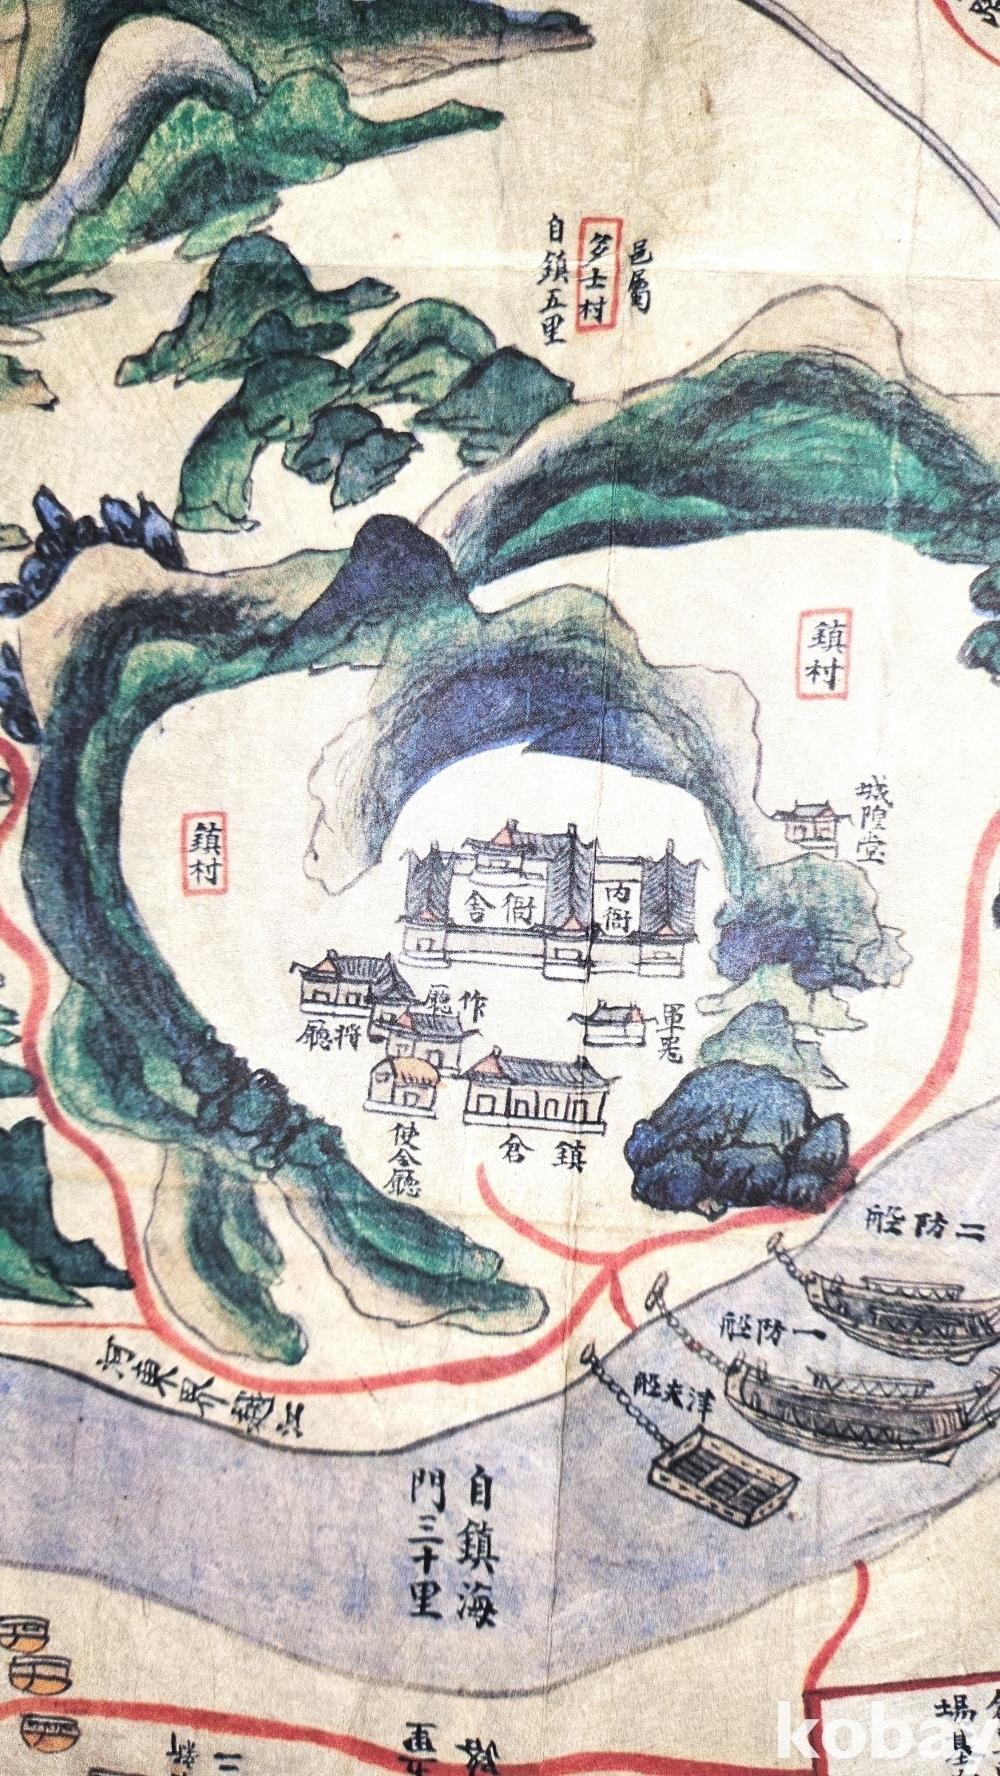 邑屬
多士村
自鎮五里
鎮村
城隍堂
鎮村
內衙
衙舍
作廳
將廳
使令廳
鎮倉
二防船
一防船
津夫船
河東界
江
自鎮海
門三十里
kobay